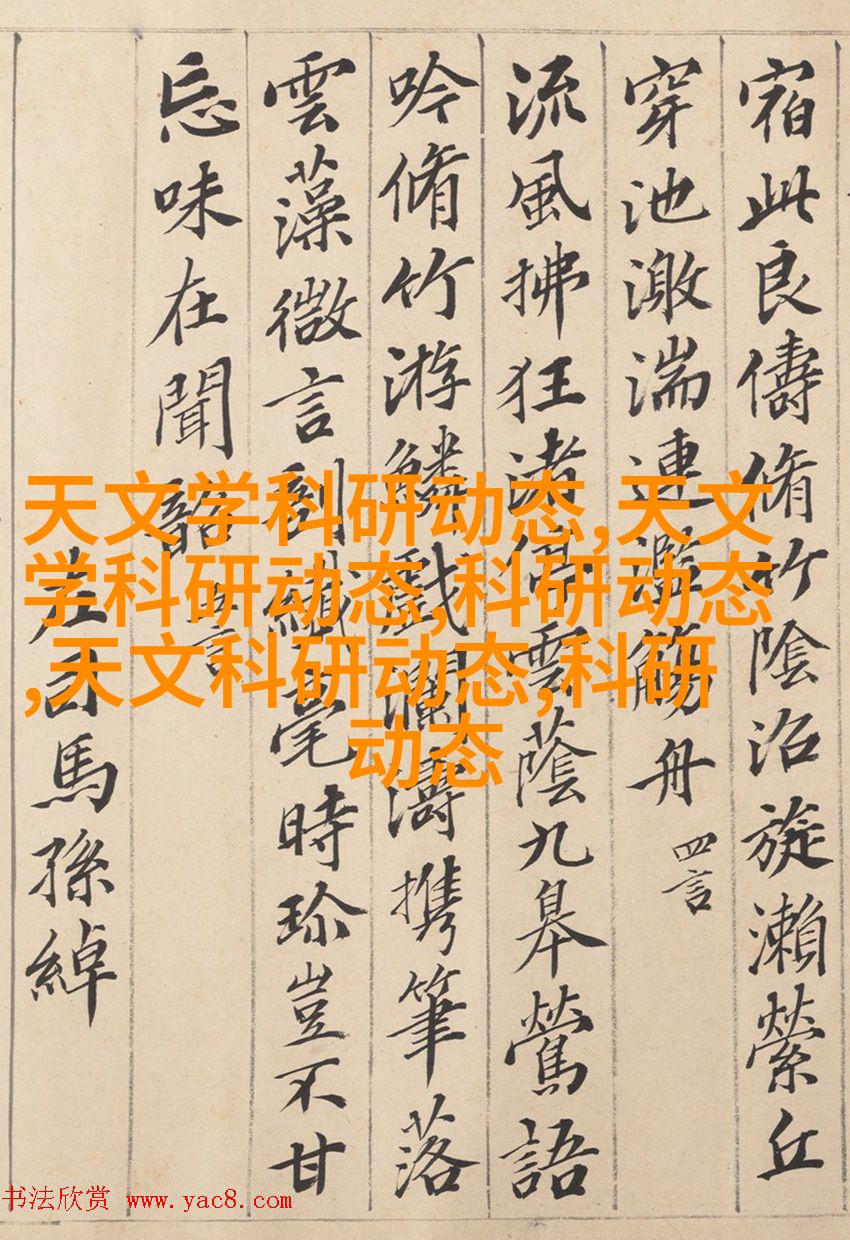 宿此良儔脩竹陰沼旋瀨縈丘
穿池激湍連濫觴舟 四言
流風拂狂渚停雲蔭九皋鶯語
吟脩竹游鱗戲瀾濤携筆落
雲藻微言剖纖毫時珍豈不甘
忘味在聞韶 五言
左司馬孫綽
天文学科研动态,天文
学科研动态,科研动态
,天文科研动态,科研
动态
书法欣赏 www.yac8.com